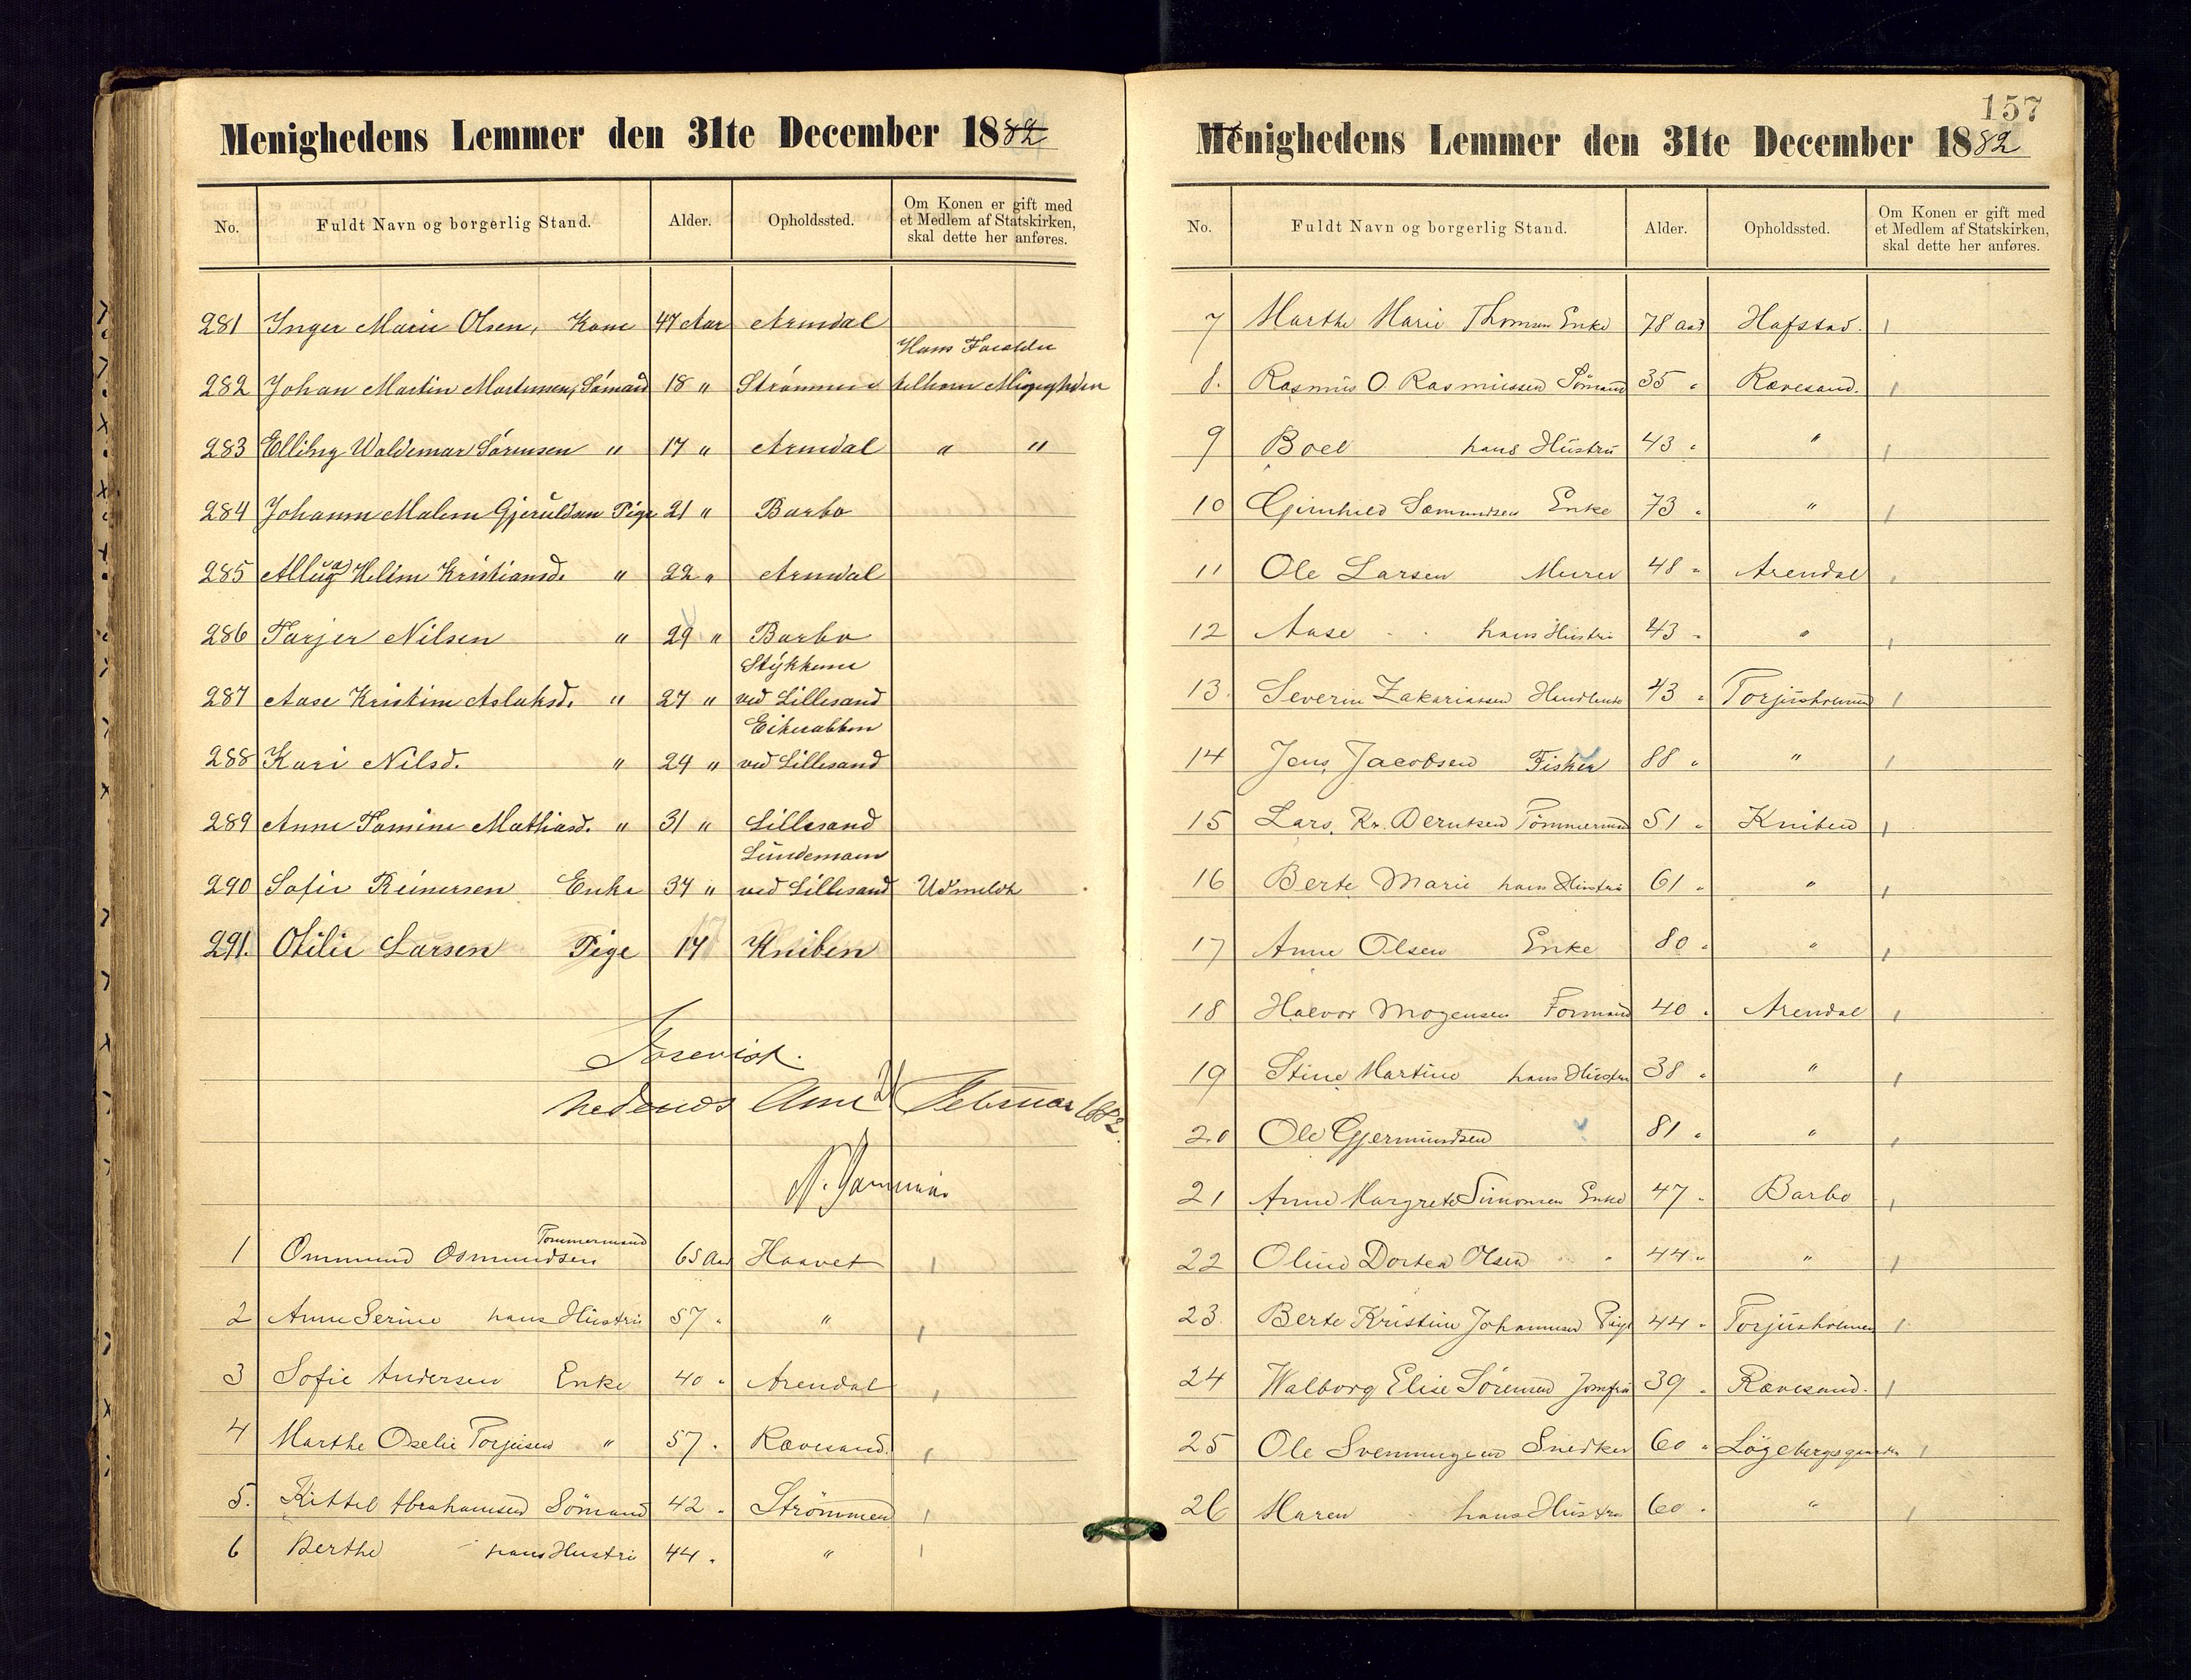 Menighedens Lemmer den 31te December 1882
No. Fuldt Navn og borgerlig Stand. Alder. Opholdssted. Om Konen er gift med et Medlem af Statskirken, skal dette her anføres.
281 Inger Marie Olsen, Kone 47 Aar Arendal
Hans Forældre
282 Johan Martin Martinsen, Sømand 18 " Strømmen tilhører Menigheden
283 Elling Waldemar Sørensen " 17 " Arendal " "
284 Johanne Malene Gjeruldsen Pige 21 " Barbo
285 Helene Kristiansd. " 22 " Arendal
286 Tarjer Nilsen " 29 " Barbo
Stykkene
287 Aase Kristine Aslaksd. " 27 " ved Lillesand
Eikenabben
288 Kari Nilsd. " 24 " ved Lillesand
289 Anne Tomine Mathiasd. " 31 " Lillesand
290 Sofie Reinersen Enke 34 " ved Lillesand Udmeldt
291. Otilie Larsen Pige 17 Kniben
Forevist.
Nedenes Amt 21 Februar 1882.
Tømmermand
1 Ommund Osmundsen 65 Aar Haavet
2 Anne Serine hans Hustru 57 " "
3 Sofie Andersen Enke 40 " Arendal
4 Marthe Oselie Torjusen " 57 " Rævesand.
5. Kittel Abrahamsen Sömand 42 " Strömmen
6 Berthe hans Hustru 44 " "
157
Menighedens Lemmer den 31te December 1882
No. Fuldt Navn og borgerlig Stand. Alder. Opholdssted. Om Konen er gift med et Medlem af Statskirken, skal dette her anføres.
7 Marthe Marie Thomsen Enke 78 Aar Hafstad.
8. Rasmus O. Rasmussen Sömand 35 " Rævesand.
9 Boel hans Hustru 43 " "
10 Gunhild Sæmundsen Enke 73 " "
11 Ole Larsen Murer 48 " Arendal
12 Aase hans Hustru 43 " "
13. Severin Zakariassen 43 " Torjusholmen
14 Jens Jacobsen Fisker 88 " "
15 Lars Kr. Berntsen Tömmermand 51 " Kniben
16 Berte Marie hans Hustru 61 " "
17 Anne Olsen Enke 80 " "
18 Halvor Mogensen Formand 40 " Arendal
19 Stine Martine hans Hustru 38 " "
20 Ole Gjermundsen 81 " "
21 Anne Margrete Simonsen Enke 47 " Barbo
22 Oline Dortea Olsen " 44 " "
23. Berte Kristine Johannesen Pige 44 " Torjusholmen
24 Walborg Elise Sörensen Jomfru 39 " Rævesand.
25 Ole Svenningsen Snedker 60 "
26 Maren hans Hustru 60 " "